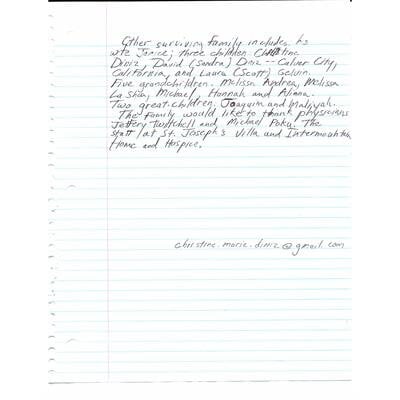 Other surviving family includes his
wife Janice; three children Christine
Diniz, David (Sandra) Diniz -- Culver City,
California, and Laura (Scott) Gelvin.
Five grandchildren. Melissa Andrea, Melissa
La Shea, Michael, Hannah and Alinna.
Two great-children, Joaquim and Maliyah.
The Family would like to thank physicians
Jeffery Twitchell and Michael Poku. The
staff at St. Joseph's Villa and Intermountain
Home and Hospice.
christine.marie.diniz@gmail.com